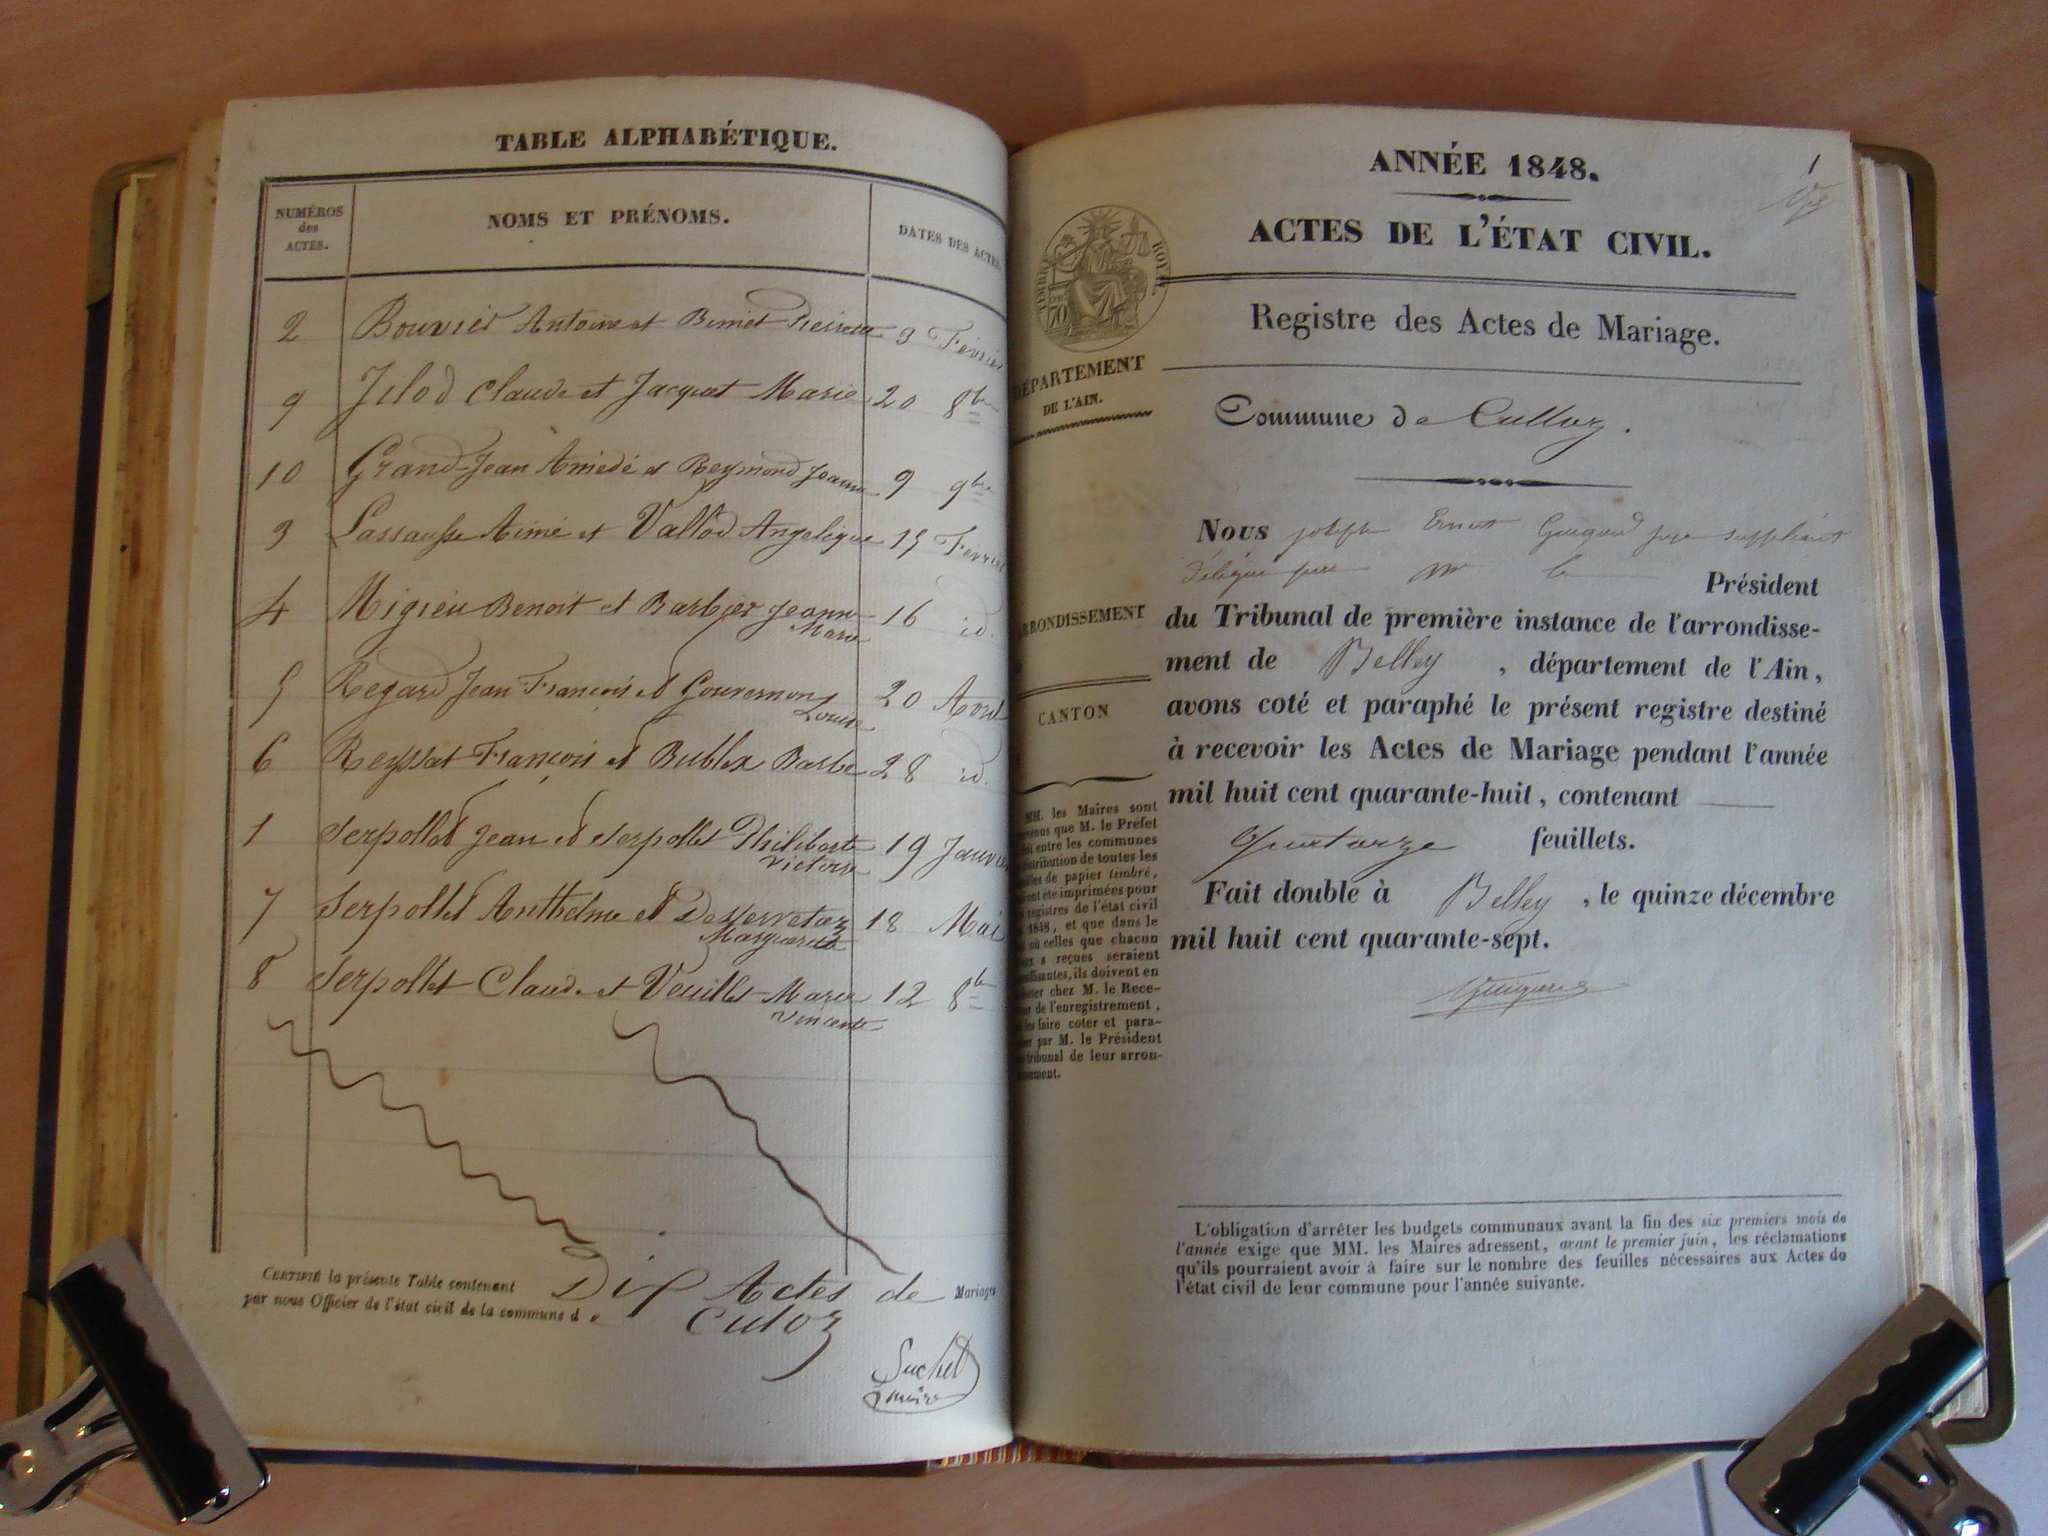 TABLE ALPHABÉTIQUE.
NUMÉROS des ACTES.
NOMS ET PRÉNOMS.
DATES DES ACTES.
2 Bouvier Antoine et 9 Février
9 Jilod Claude et Jacquet Marie 20 8bre
10 Grand-Jean Amédé et Reymond Jeanne 9 9bre
3 Lassausse Aimé et Vallod Angelique 15 Fevrier
4 Migieu Benoit et Barbier Jeanne 16 id.
Marie
5 Regard Jean François et Gouvernon 20 Avril
Louise
6 Reyssat François et Bublex Barbe 28 id.
1 Serpollet Jean et Serpollet Philiberte 19 Janvier
Victoire
7 Serpollet Anthelme et 18 Mai
Marguerite
8 Serpollet Claude et Veuillet Marie 12 8bre
Vincente
CERTIFIÉ la présente Table contenant Dix Actes de Mariages
par nous Officier de l'état civil de la commune de Culoz
Suchet
maire
1
ANNÉE 1848.
ACTES DE L'ÉTAT CIVIL.
TIMBRE ROYAL
70
Registre des Actes de Mariage.
DÉPARTEMENT
DE L'AIN.
Commune de Culloz.
Nous joseph Ernest Guigard juge suppléant
délégué par Mr le Président
ARRONDISSEMENT
du Tribunal de première instance de l'arrondisse-
ment de Belley, département de l'Ain,
CANTON
avons coté et paraphé le présent registre destiné
à recevoir les Actes de Mariage pendant l'année
mil huit cent quarante-huit, contenant
quatorze feuillets.
Fait double à Belley, le quinze décembre
mil huit cent quarante-sept.
MM. les Maires sont
que M. le Préfet
entre les communes
distribution de toutes les
de papier timbré,
ont été imprimées pour
registres de l'état civil
1848, et que dans le
où celles que chacun
a reçues seraient
insuffisantes, ils doivent en
chez M. le Rece-
de l'enregistrement,
les faire coter et para-
par M. le Président
tribunal de leur arron-
L'obligation d'arrêter les budgets communaux avant la fin des six premiers mois de
l'année exige que MM. les Maires adressent, avant le premier juin, les réclamations
qu'ils pourraient avoir à faire sur le nombre des feuilles nécessaires aux Actes de
l'état civil de leur commune pour l'année suivante.